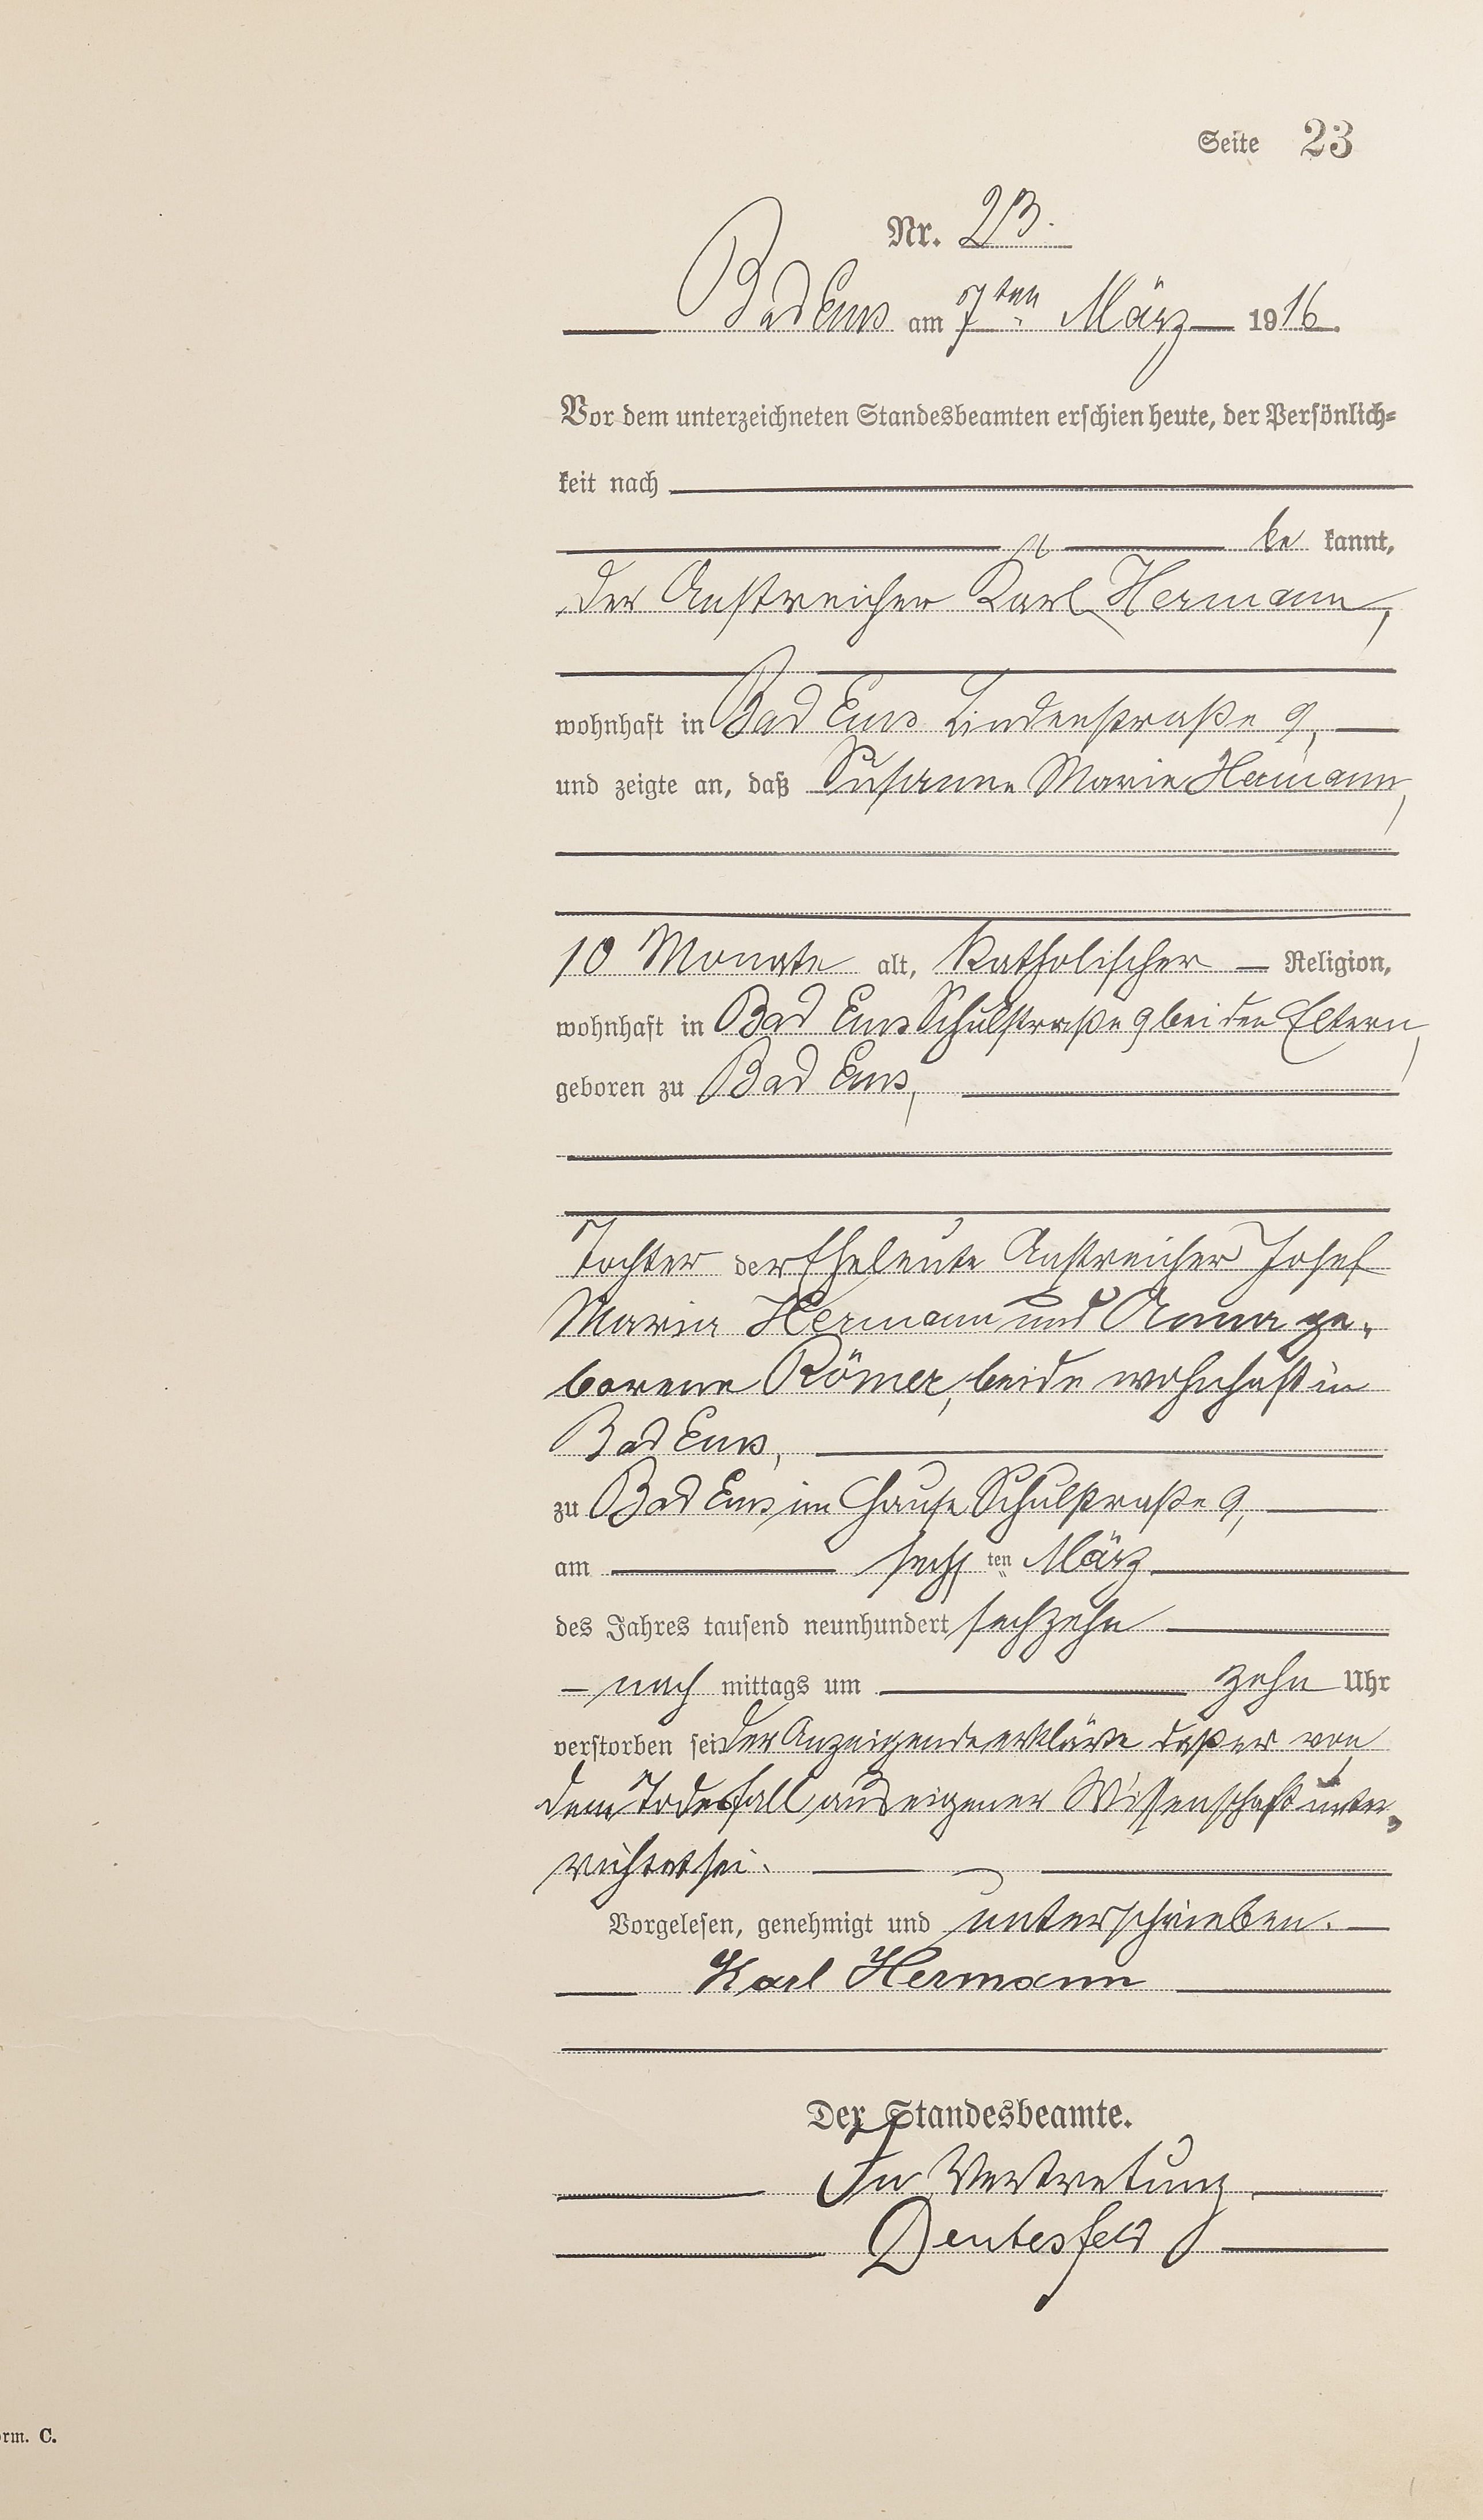 Seite 23
Nr. 23.
Bad Ems am 7ten März 1916.
Vor dem unterzeichneten Standesbeamten erschien heute, der Persönlich-
keit nach
be kannt,
der Anstreicher Karl Hermann,
wohnhaft in Bad Ems Lindenstraße 9,
und zeigte an, daß Susanne Marie Hermann,
10 Monate alt, katholischer Religion,
wohnhaft in Bad Ems Schulstraße 9 bei den Eltern,
geboren zu Bad Ems,
Tochter der Eheleute Anstreicher Josef
Maria Hermann und Anna ge-
borene Römer, beide wohnhaft in
Bad Ems,
zu Bad Ems im Hause Schulstraße 9,
am sechsten März
des Jahres tausend neunhundert sechzehn
nach mittags um zehn Uhr
verstorben sei. Der Anzeigende erklärte daß er von
dem Todesfall aus eigener Wissenschaft unter-
richtet sei.
Vorgelesen, genehmigt und unterschrieben.
Karl Hermann
Der Standesbeamte.
In Vertretung
orm. C.